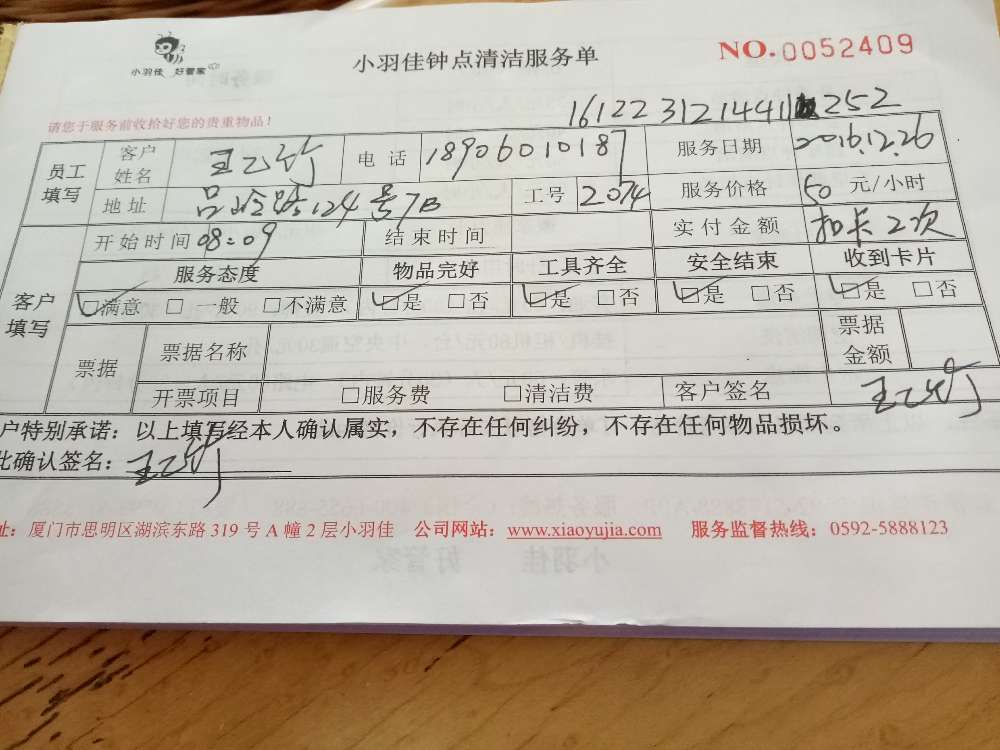 小羽佳 好管家
小羽佳钟点清洁服务单
NO.0052409
请您于服务前收拾好您的贵重物品!
1612231214411 252
员工填写 客户姓名 王乙竹 电话 18906010187 服务日期 2016.12.26
地址 吕岭路124号7B 工号 2074 服务价格 50 元/小时
客户填写 开始时间 08:09 结束时间 实付金额 扣卡2次
服务态度 物品完好 工具齐全 安全结束 收到卡片
☑满意 □一般 □不满意 ☑是 □否 ☑是 □否 ☑是 □否 ☑是 □否
票据 票据名称 票据金额
开票项目 □服务费 □清洁费 客户签名 王乙竹
户特别承诺:以上填写经本人确认属实,不存在任何纠纷,不存在任何物品损坏。
此确认签名:王乙竹
址:厦门市思明区湖滨东路319号A幢2层小羽佳 公司网站:www.xiaoyujia.com 服务监督热线:0592-5888123